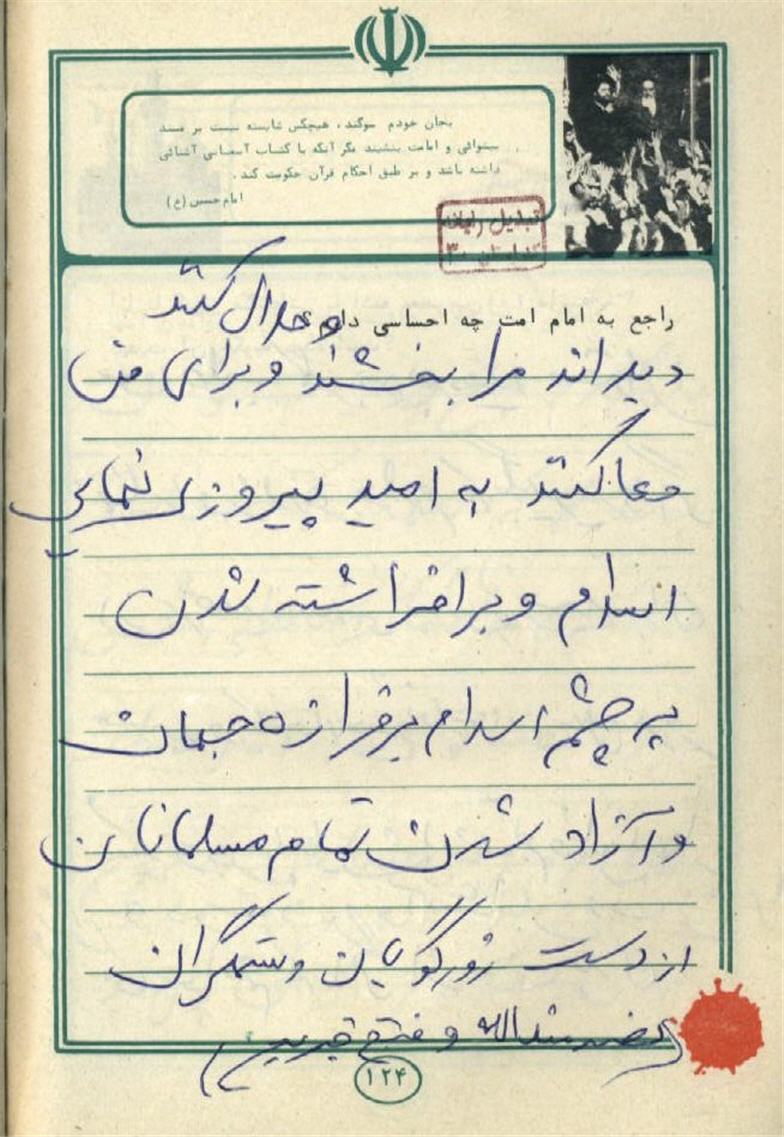 بجان خودم سوگند، هیچکس شایسته نیست بر مسند
پیشوائی و امامت بنشیند مگر آنکه با کتاب آسمانی آشنائی
داشته باشد و بر طبق احکام قرآن حکومت کند.
امام حسین (ع)
تبدیل رایانه
راجع به امام امت چه احساسی دارم؟
و حلال کنند
دیده‌اند مرا ببخشند و برای من
دعا کنند به امید پیروزی نهایی
اسلام و برافراشته شدن
پرچم اسلام بر فرازه جهان
و آزاد شدن تمام مسلمانان
از دست زورگویان و ستمگران
(نصر من الله و فتح قریب)
۱۲۴